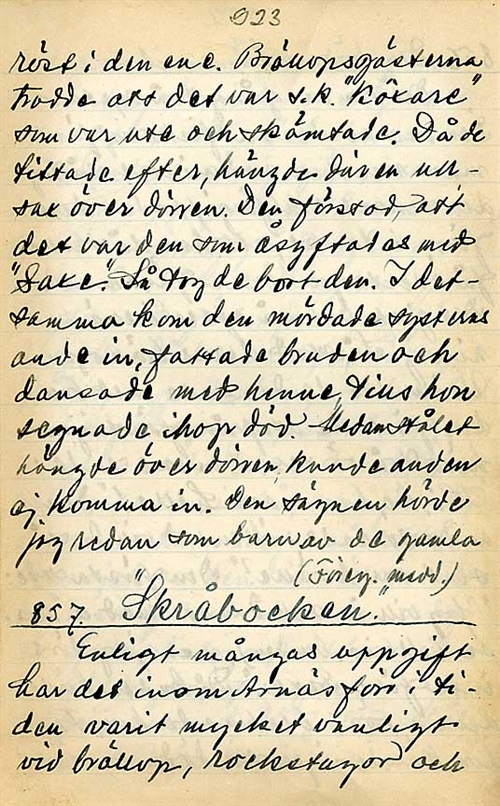 923
röst i den ene. Bröllopsgästerna
trodde att det var s.k. "Köxare"
som var ute och skämtade. Då de
tittade efter, hängde där en ull-
sax över dörren. Den förstod, att
det var den som åsyftades med
"Saxe". Så tog de bort den. I det-
samma kom den mördade systerns
ande in, fattade bruden och
dansade med henne, tills hon
segnade ihop död. Medan stålet
hängde över dörren, kunde anden
ej komma in. Den sägnen hörde
jag redan som barn av de gamla
(Föreg. medd.)
857. "Skråbocken."
Enligt mångas uppgift
har det inom Arnäs förr i ti-
den varit mycket vanligt
vid bröllop, rockstugor och